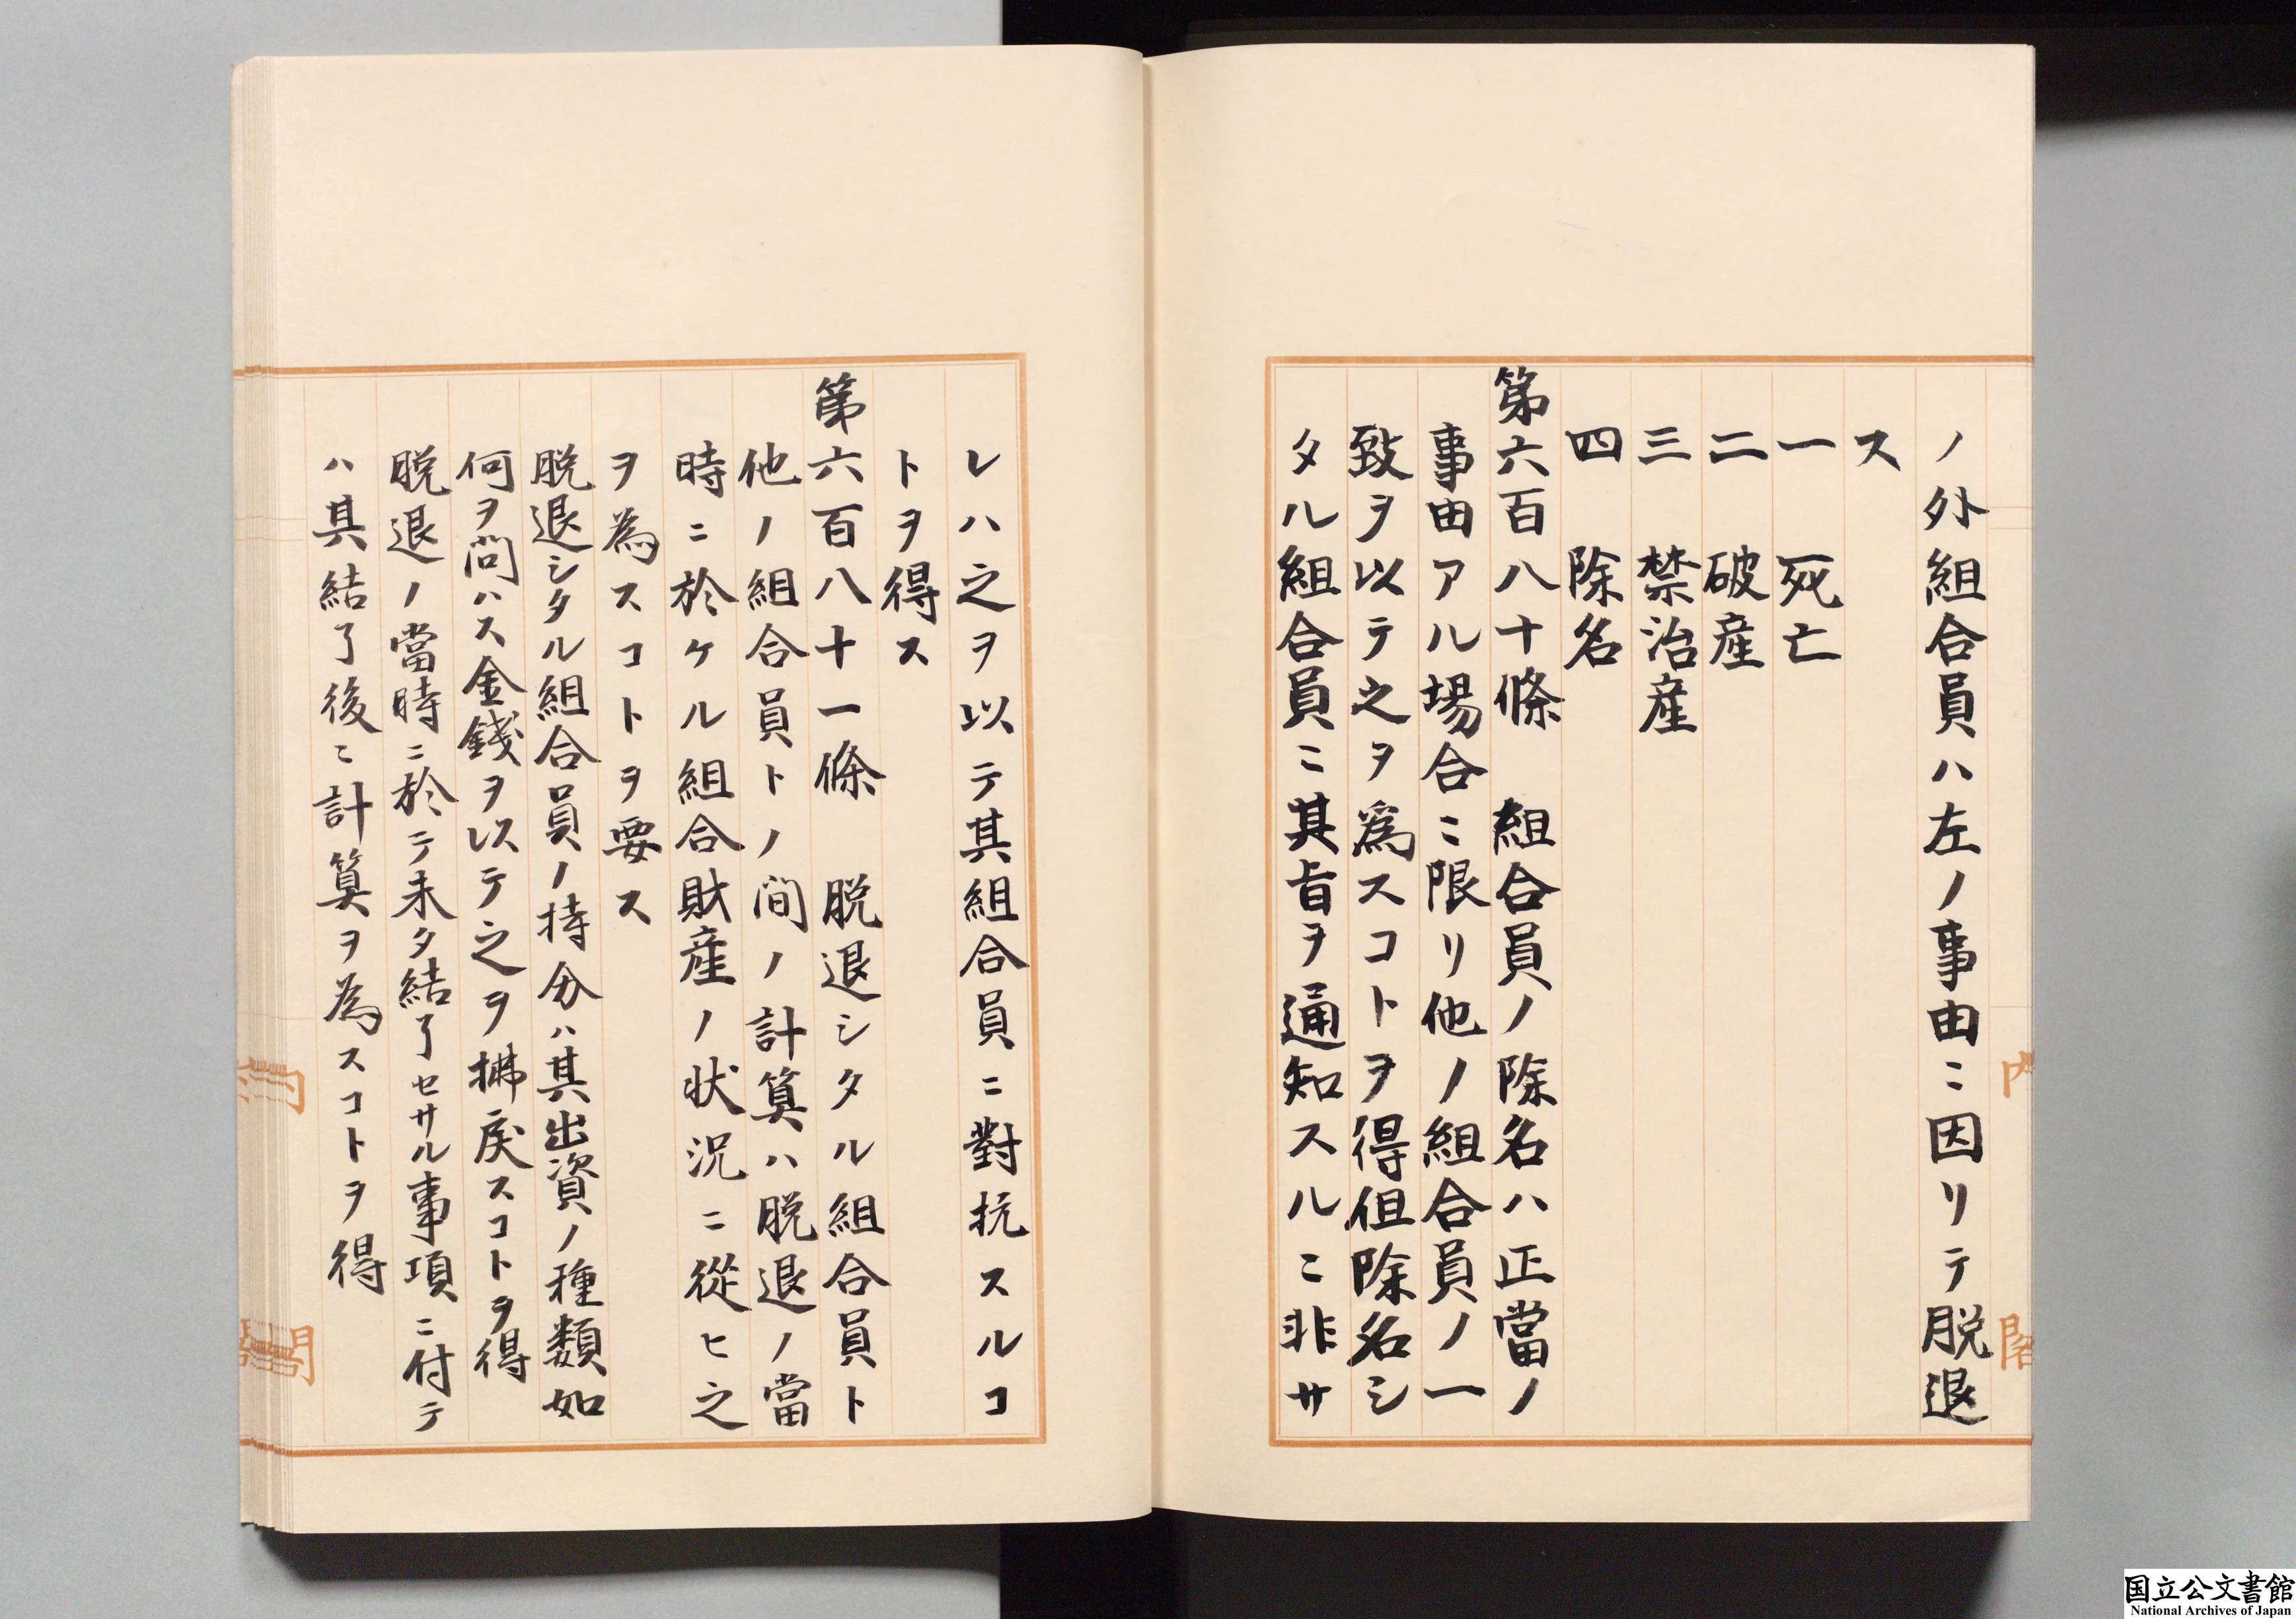 ノ外組合員ハ左ノ事由ニ因リテ脱退
ス
一 死亡
二 破産
三 禁治産
四 除名
第六百八十條 組合員ノ除名ハ正當ノ
事由アル場合ニ限リ他ノ組合員ノ一
致ヲ以テ之ヲ爲スコトヲ得但除名シ
タル組合員ニ其旨ヲ通知スルニ非サ
レハ之ヲ以テ其組合員ニ對抗スルコ
トヲ得ス
第六百八十一條 脱退シタル組合員ト
他ノ組合員トノ間ノ計算ハ脱退ノ當
時ニ於ケル組合財産ノ状況ニ從ヒ之
ヲ為スコトヲ要ス
脱退シタル組合員ノ持分ハ其出資ノ種類如
何ヲ問ハス金錢ヲ以テ之ヲ拂戻スコトヲ得
脱退ノ當時ニ於テ未タ結了セサル事項ニ付テ
ハ其結了後ニ計算ヲ為スコトヲ得
内閣
国立公文書館
National Archives of Japan